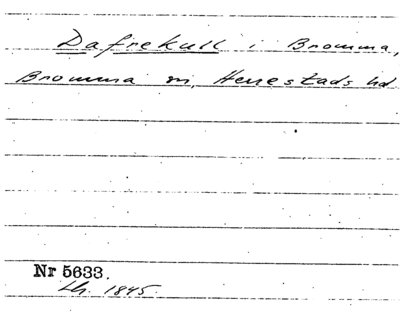 Dafrekull i Bromma,
Bromma sn, Herrestads hd
Nr 5633.
Lh. 1845.